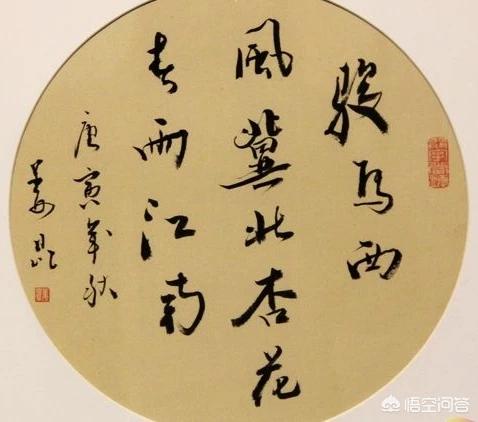 駿马西
風冀北杏花
春雨江南
庚寅年秋
姜昆
悟空问答